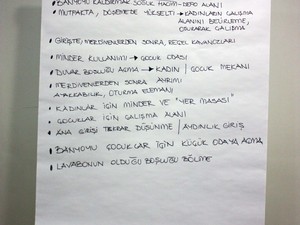 • BANYOYU KALDIRMAK SOĞUK HACİM-DEPO ALANI
• MUTFAKTA, DÖŞEMEDE YÜKSELTİ → KADINLARIN ÇALIŞMA
ALANINI BELİRLEME,
OTURARAK ÇALIŞMA
• GİRİŞTEKİ MERDİVENLERDEN SONRA, REÇEL KAVANOZLARI
• MİNDER KULLANIMI → ÇOCUK ODASI
• DUVAR BOŞLUĞU AÇMA → KADIN / ÇOCUK MEKANI
• MERDİVENLERDEN SONRA AYRIMI
AYAKKABILIK, OTURMA ELEMANI
• KADINLAR İÇİN MİNDER VE "YER MASASI"
• ÇOCUKLAR İÇİN ÇALIŞMA ALANI
• ANA GİRİŞİ TEKRAR DÜŞÜNME / AYDINLIK GİRİŞ
• BANYOYU ÇOCUKLAR İÇİN KÜÇÜK ODAYA AÇMA
• LAVABONUN OLDUĞU BOŞLUĞU BÖLME